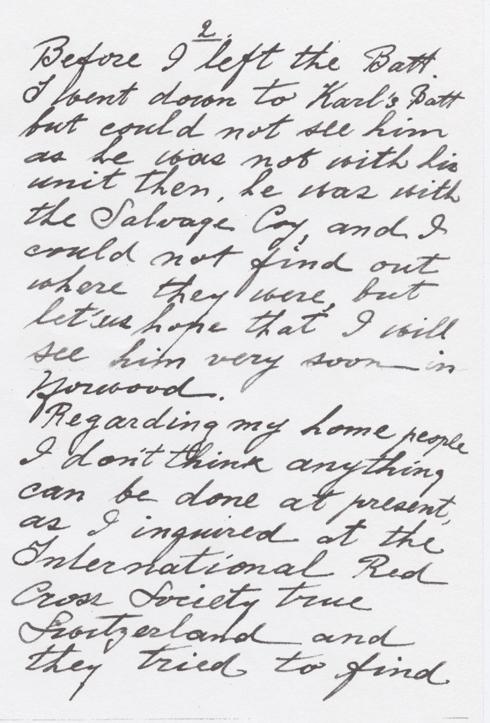 2.
Before I left the Batt.
I went down to Karl's Batt
but could not see him
as he was not with his
unit then, he was with
the Salvage Coy, and I
could not find out
where they were, but
let us hope that I will
see him very soon in
Norwood.
Regarding my home people
I don't think anything
can be done at present,
as I inquired at the
International Red
Cross Society true
Switzerland and
they tried to find